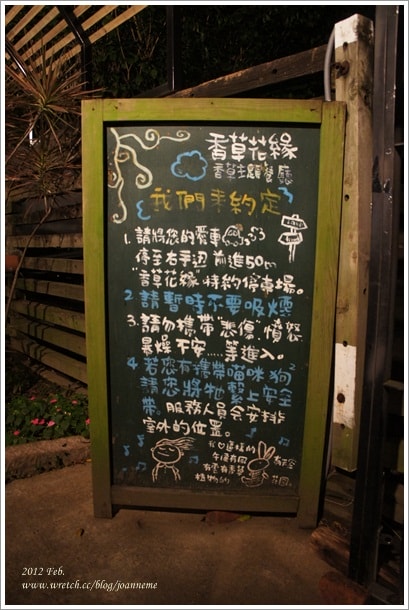 香草花緣
香草主題餐廳
我們來約定
1. 請將您的愛車
停至右手邊 前進50m
"香草花緣"特約停車場。
2. 請暫時不要吸煙
3. 請勿攜帶"悲傷,憤怒
暴燥不安....等進入。
4. 若您有攜帶喵咪.狗
請您將牠繫上安全
帶。服務人員會安排
室外的位置。
我♡這樣的
午後有回
植物的
花園。
2012 Feb.
www.wretch.cc/blog/joanneme